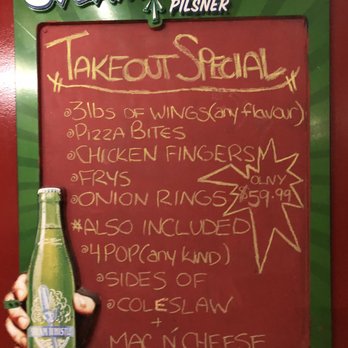 PILSNER
TAKEOUT SPECIAL
3lbs OF WINGS (any flavour)
PIZZA BITES
CHICKEN FINGERS
FRYS
ONION RINGS
OLNY
$59.99
*ALSO INCLUDED
4 POP (any kind)
SIDES OF
COLESLAW
+
MAC N' CHEESE